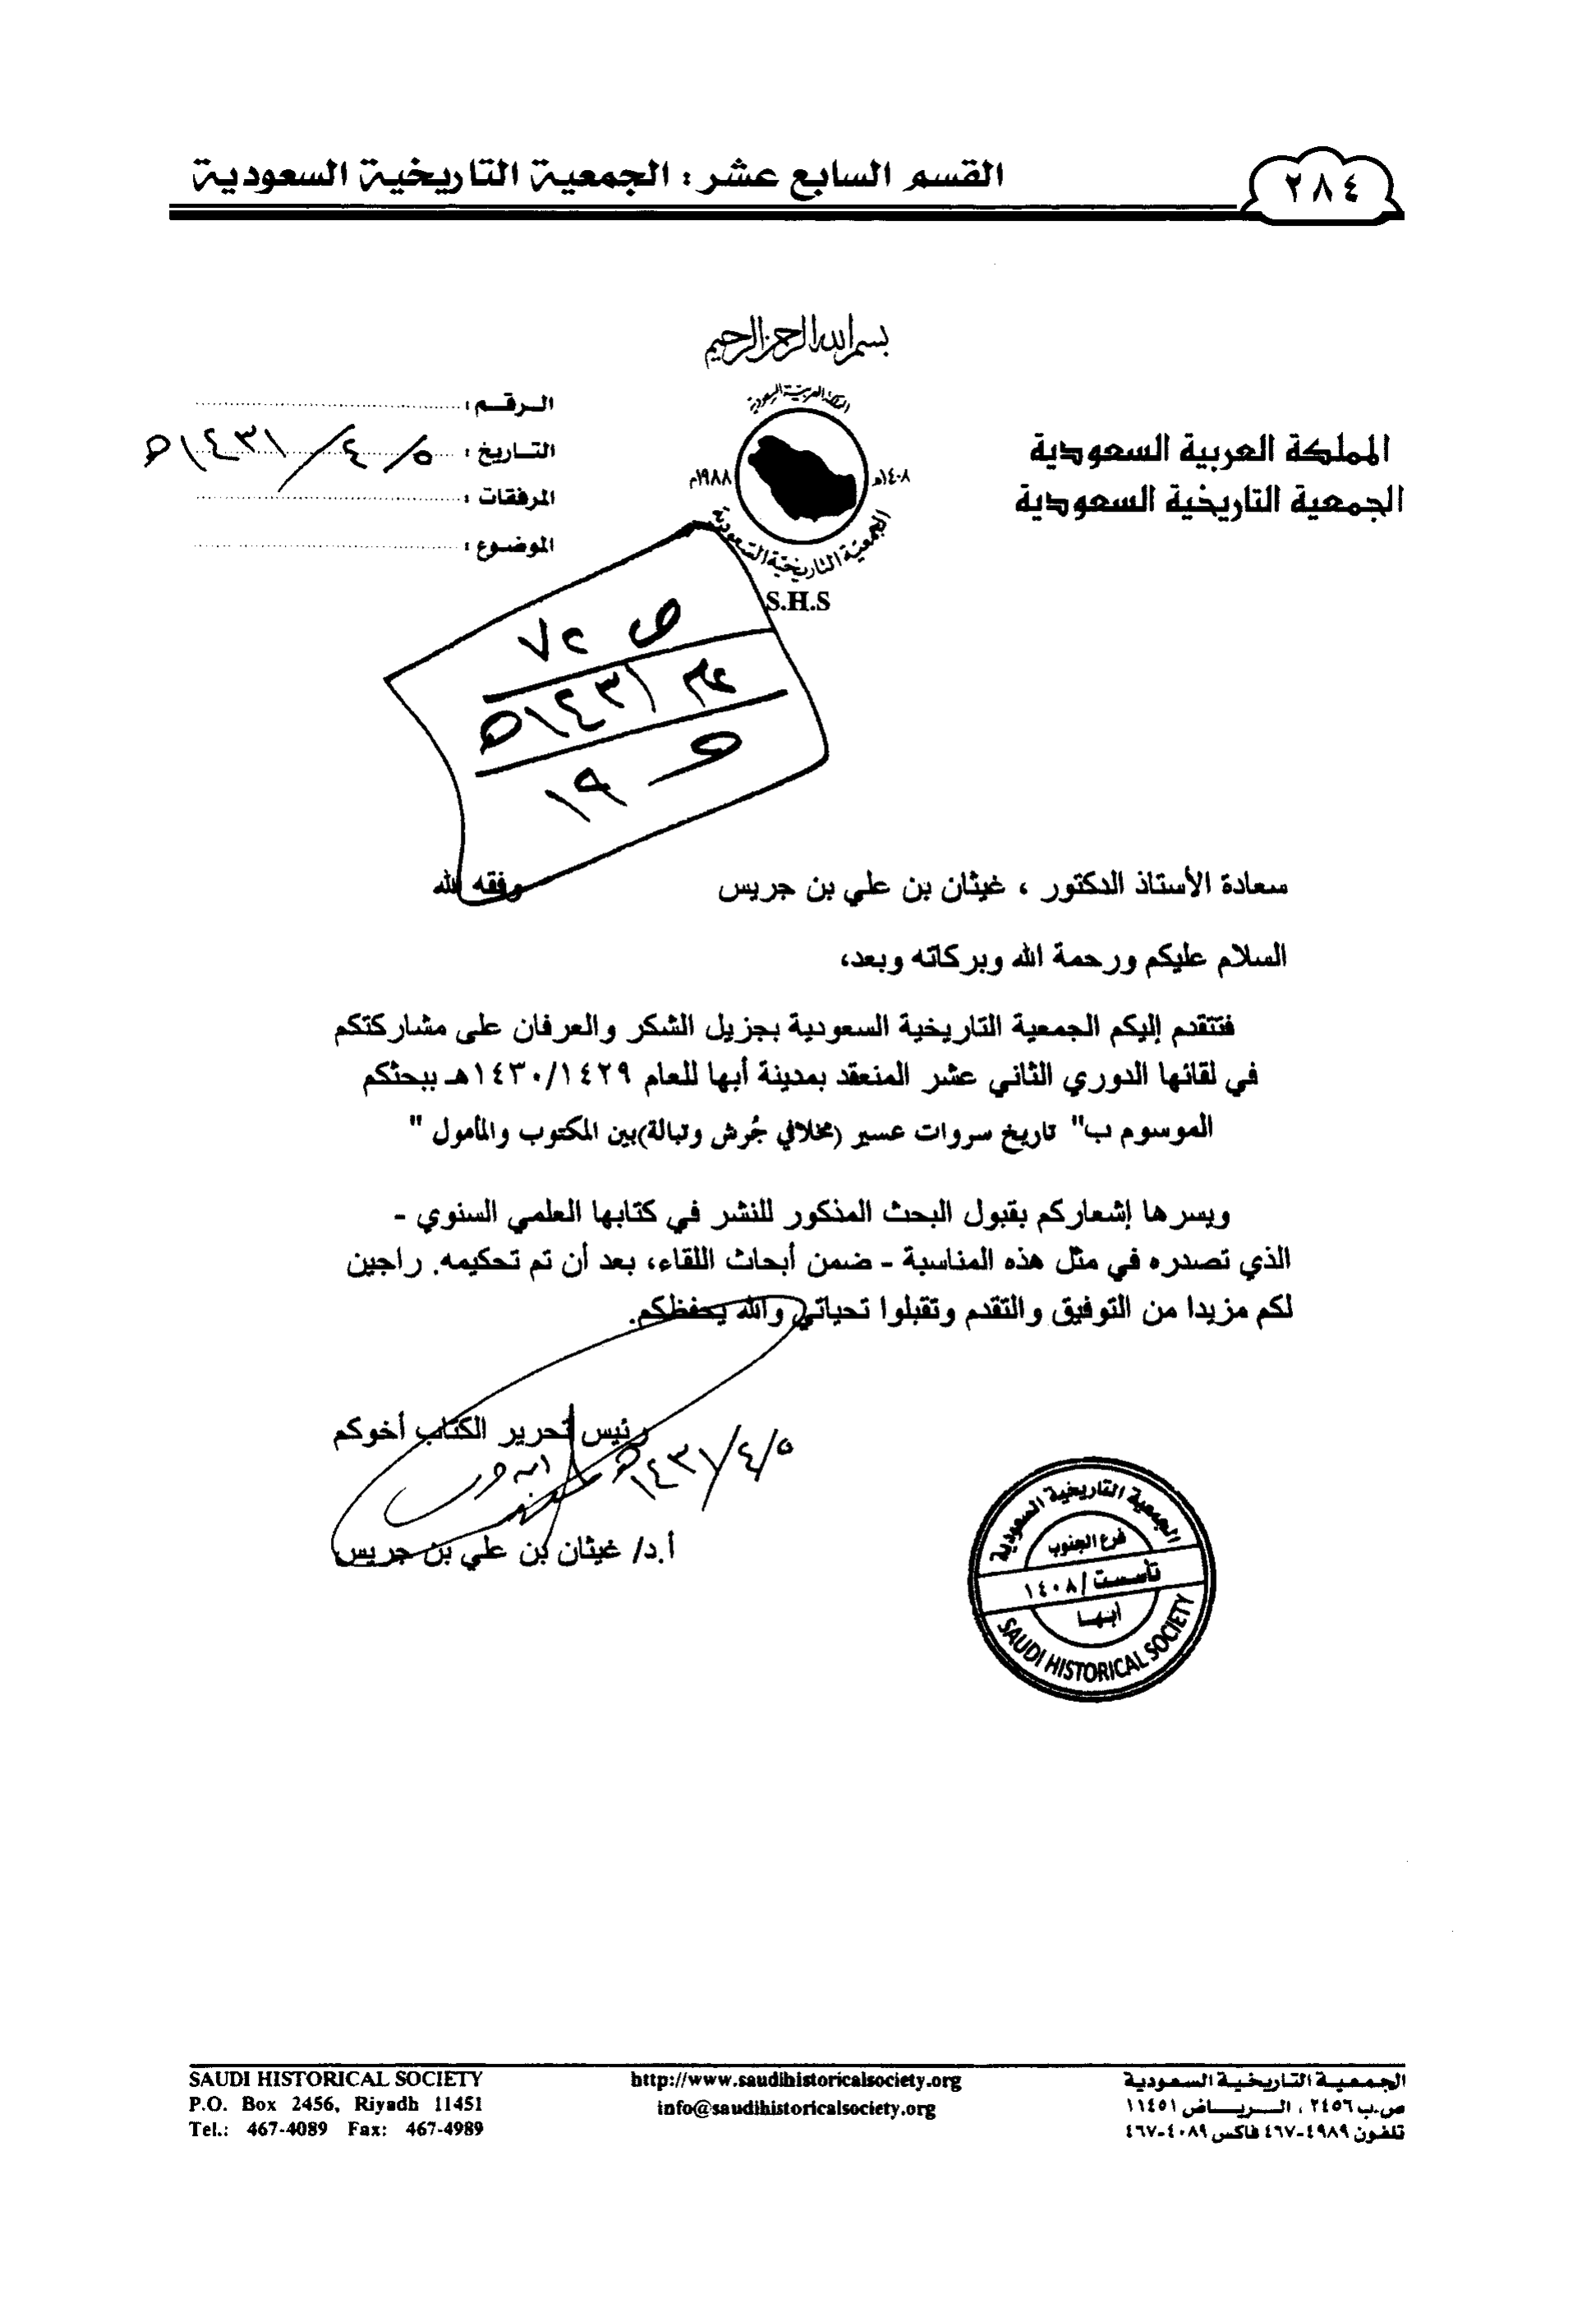 القسم السابع عشر : الجمعية التاريخية السعودية
٢٨٤
بسم الله الرحمن الرحيم
المملكة العربية السعودية
الجمعية التاريخية السعودية
المملكة العربية السعودية
١٤٠٨هـ
١٩٨٨م
الجمعية التاريخية السعودية
S.H.S
الـرقـم :
التـاريخ : ٥/٤/١٤٣١هـ
المرفقات :
الموضوع :
ص ٢٧
١٤٣١هـ
و ١٩
سعادة الأستاذ الدكتور ، غيثان بن علي بن جريس وفقه الله
السلام عليكم ورحمة الله وبركاته وبعد،
فتتقدم إليكم الجمعية التاريخية السعودية بجزيل الشكر والعرفان على مشاركتكم
في لقائها الدوري الثاني عشر المنعقد بمدينة أبها للعام ١٤٣٠/١٤٢٩هـ ببحثكم
الموسوم ب" تاريخ سروات عسير (مخلافي جُرش وتبالة)بين المكتوب والمأمول "
ويسرها إشعاركم بقبول البحث المذكور للنشر في كتابها العلمي السنوي -
الذي تصدره في مثل هذه المناسبة - ضمن أبحاث اللقاء، بعد أن تم تحكيمه. راجين
لكم مزيدا من التوفيق والتقدم وتقبلوا تحياتي والله يحفظكم.
رئيس تحرير الكتاب أخوكم
٥/٤/١٤٣١هـ
أ.د/ غيثان بن علي بن جريس
الجمعية التاريخية السعودية
فرع الجنوب
تأسست / ١٤٠٨
أبها
SAUDI HISTORICAL SOCIETY
SAUDI HISTORICAL SOCIETY
P.O. Box 2456, Riyadh 11451
Tel.: 467-4089 Fax: 467-4989
http://www.saudihistoricalsociety.org
info@saudihistoricalsociety.org
الجمعيـة التـاريخيـة السـعودية
ص.ب ٢٤٥٦ ، الـــريـــاض ١١٤٥١
تلفـون ٤٩٨٩-٤٦٧ فاكس ٤٠٨٩-٤٦٧